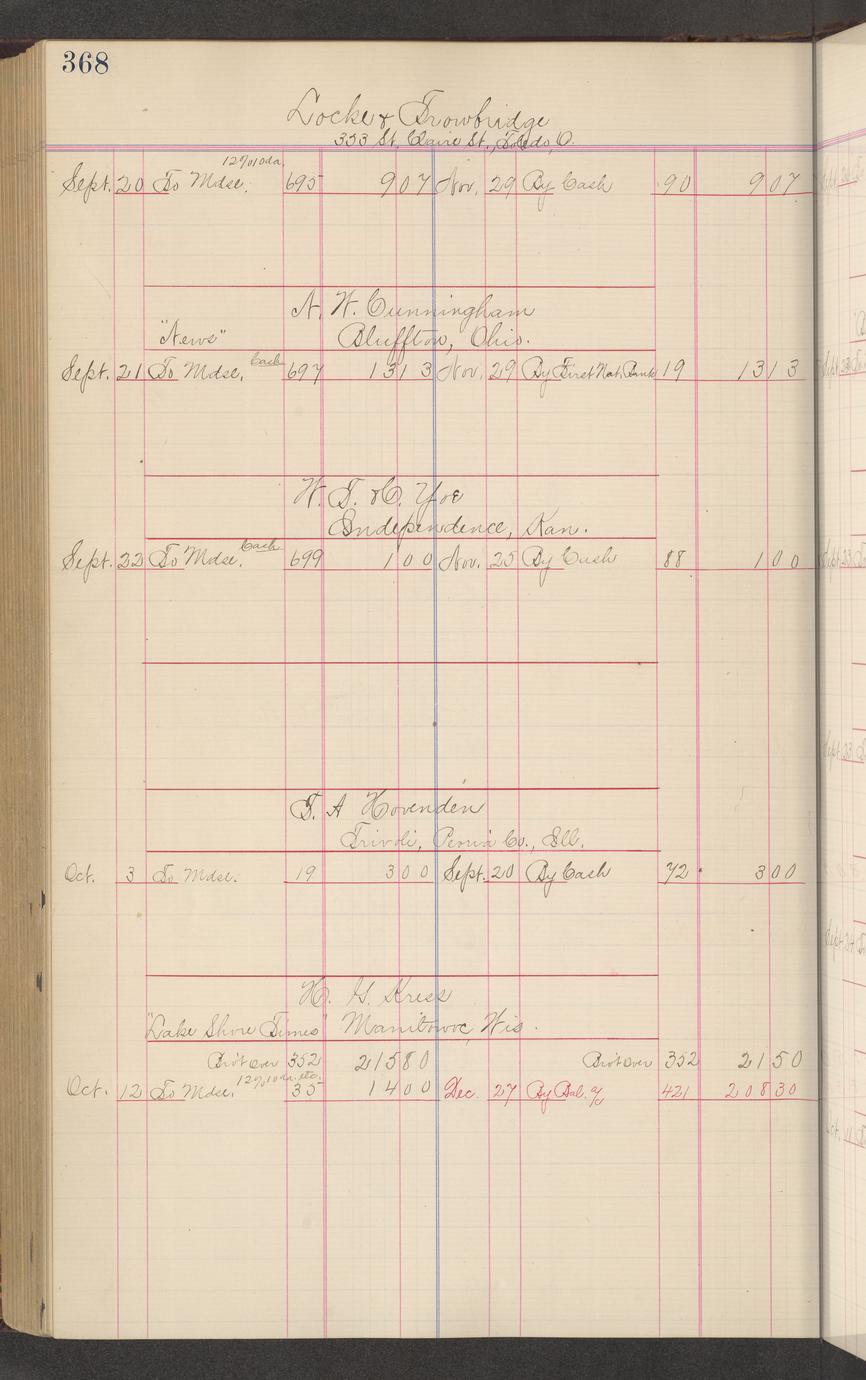 368
Locke & Trowbridge
353 St. Claire St., Toledo, O.
12%10da.
Sept. 20 To Mdse. 695 907 Nov. 29 By Cash 90 907
A. W. Cunningham
"News" Bluffton, Ohio.
Sept. 21 To Mdse. Cash 697 1313 Nov. 29 By First Nat. Bank 19 1313
W. T. & C. Yoe
Independence, Kan.
Sept. 22 To Mdse. Cash 699 100 Nov. 25 By Cash 88 100
T. A Hovenden
Trivoli, Peoria Co., Ill.
Oct. 3 To Mdse. 19 300 Sept. 20 By Cash 72 300
H. G. Kress
"Lake Shore Times" Manitowoc, Wis.
Bro't Over 352 21580 Bro't Over 352 2150
12%10da. etc.
Oct. 12 To Mdse. 35 1400 Dec. 27 By Bal. % 421 20830